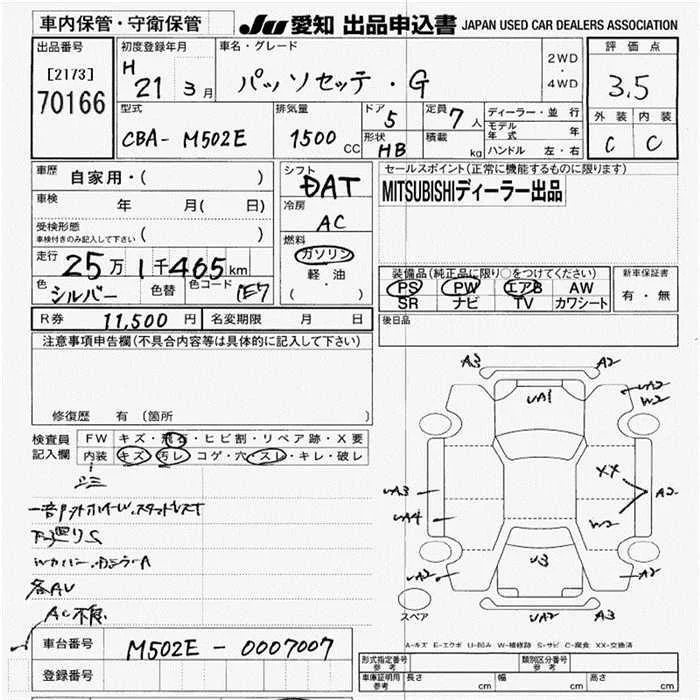 車内保管・守衛保管
JU 愛知 出品申込書 JAPAN USED CAR DEALERS ASSOCIATION
出品番号
[2173]
70166
初度登録年月
H 21 3月
車名・グレード
パッソセッテ・G
2WD
・
4WD
評価点
3.5
外装 内装
C C
型式
CBA- M502E
排気量
1500 CC
ドア 5
形状 HB
定員 7 人
積載 kg
ディーラー・並行
モデル年式 年
ハンドル 左・右
車歴 自家用・( )
車検 年 月( 日)
受検形態
車検付きのみ記入して下さい ( )
走行 25万1千465km
色 シルバー 色替 色コード 1E7
シフト
DAT
冷房
AC
燃料
ガソリン
軽・油
( )
セールスポイント(正常に機能するものに限ります)
MITSUBISHIディーラー出品
装備品(純正品に限り○をつけてください)
PS PW エアB AW
SR ナビ TV カワシート
新車保証書
有・無
R券 11,500 円 名変期限 月 日
後日品
注意事項申告欄(不具合内容等は具体的に記入して下さい)
修復歴 有 〔箇所 〕
検査員記入欄
FW キズ・飛石・ヒビ割・リペア跡・X要
内装 キズ・汚レ・コゲ・穴・スレ・キレ・破レ
下廻りS
各AU
AC不良
A3 A2
UA1
UA2
W2
UA3
UA4
XX
A2
W2
U3
UA2 A2
UA2 A3
スペア
A-キズ E-エクボ U-凹み W-補修跡 S-サビ C-腐食 XX-交換済
車台番号 M502E - 0007007
登録番号
形式指定番号 参考
類別区分番号 参考
車庫証明用 参考 長さ cm 幅 cm 高さ cm